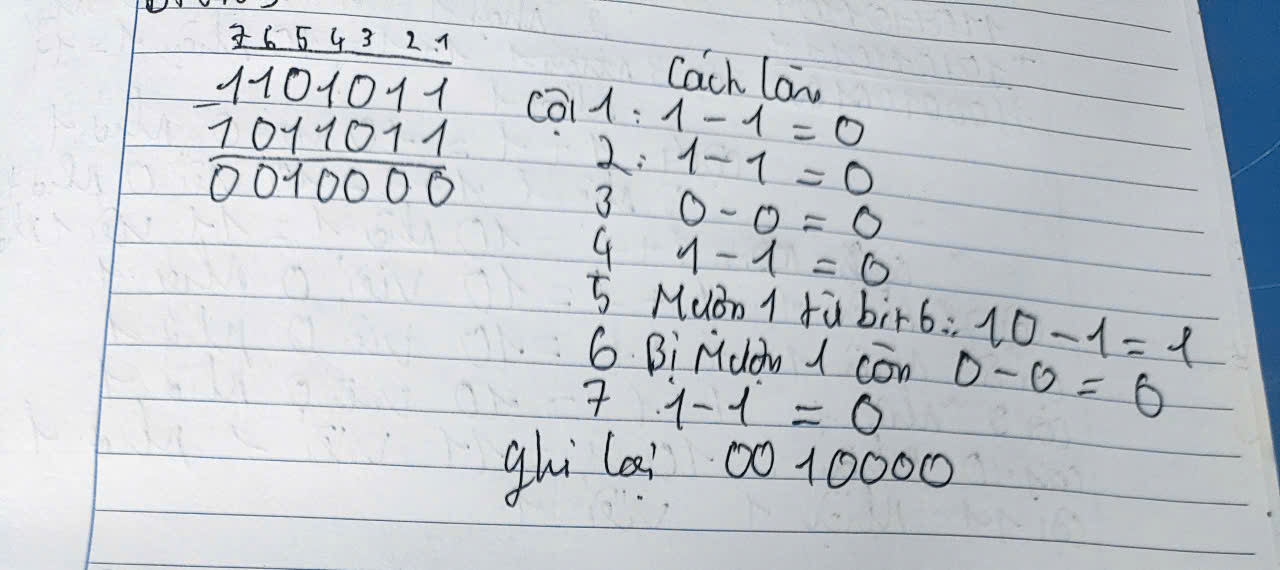 7 6 5 4 3 2 1
1101011
-
1011011
0010000
Cách làm
Cột 1 : 1 - 1 = 0
2 : 1 - 1 = 0
3 0 - 0 = 0
4 1 - 1 = 0
5 Mượn 1 từ bit 6 : 10 - 1 = 1
6 Bị Mượn 1 còn 0 - 0 = 0
7 1 - 1 = 0
ghi lại 0010000